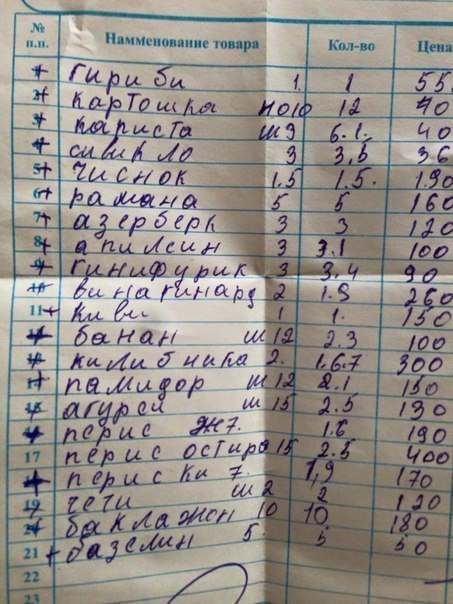 № п.п. Намменование товара Кол-во Цена
1 гириби 1. 1 55
2 картошка но10 12 40
3 каписта ш9 6.1. 40
4 сивикло 3 3,5 36
5 чиснок 1.5 1.5. 190
6 рамана 5 5 160
7 азерберк 3 3 120
8 апилсин 3 3.1 100
9 гинифурик 3 3,4 90
10 винагинард 2 1.9 260
11 киви 1 1. 150
12 банан ш12 2.3 100
13 килибника 2. 1.6.7 300
14 памидор ш12 2.1 150
15 агурси ш15 2.5 130
16 перис ж7. 1.6 190
17 перис остиро 15 2.5 400
18 периски 7. 1,9 170
19 чети ш2 2 120
20 баклажен 10 10 180
21 базелин 5. 5 50
22
23